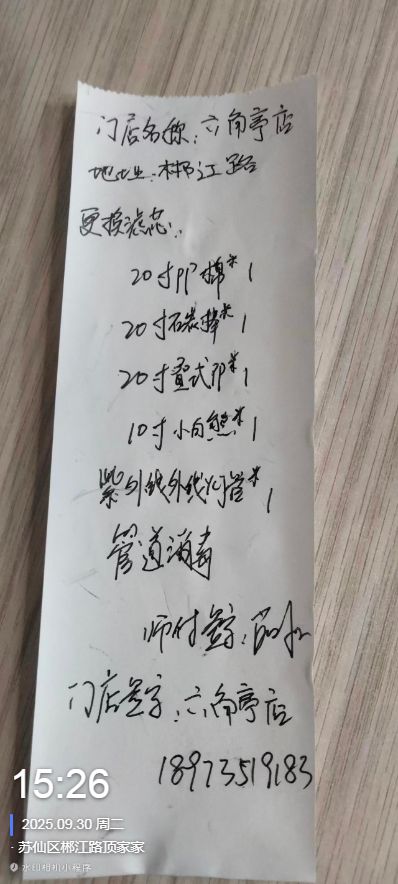 门店名称:六角亭店
地址:郴江路
更换滤芯:
20寸PP棉*1
20寸石炭棒*1
20寸叠式PP*1
10寸小白熊*1
紫外线外线灯管*1
管道消毒
师付签字:
门店签字:六角亭店
18973519183
15:26
2025.09.30 周二
·苏仙区郴江路顶家家
水印相机小程序